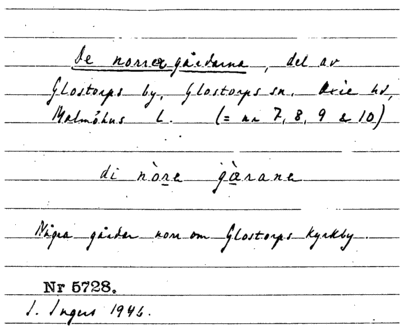 De norra gårdarna, del av
Glostorps by, Glostorps sn. Oxie hd,
Malmöhus L. (= nr 7, 8, 9 & 10)
di nòre gàrane
Några gårdar norr om Glostorps kyrkby.
Nr 5728.
I. Ingers 1946.